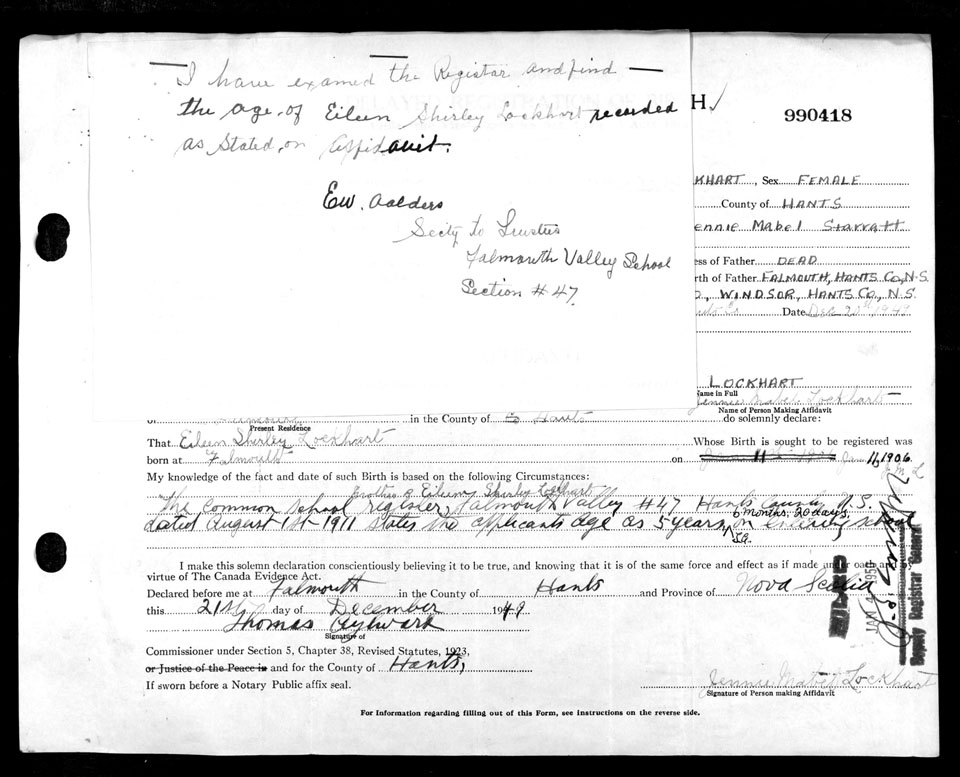 I have examed the Registar and find
the age of Eileen Shirley Lockhart recorded
as Stated on Affidavit.
E.W. Aalders
Secty to Trustees
Falmouth Valley School
Section # 47
H.
990418
KHART, Sex FEMALE
County of HANTS
ennie Mabel Starratt
ess of Father DEAD
rth of Father FALMOUTH, HANTS Co., N.S.
WINDSOR, HANTS Co., N.S.
Date Dec 20th, 1949
LOCKHART
Name in Full
Jennie Mabel Lockhart
Name of Person Making Affidavit
of Falmouth in the County of Hants do solemnly declare:
Present Residence
That Eileen Shirley Lockhart Whose Birth is sought to be registered was
born at Falmouth on 11 Jan 11, 1906.
J. M. L
My knowledge of the fact and date of such Birth is based on the following Circumstances:
mother of Eileen Shirley Lockhart
The Common School register, Falmouth Valley #47 Hants County, N.S.
6 months, 20 days,
dated August 1st 1911 states the applicants age as 5 years, on entering school
T.A.
I make this solemn declaration conscientiously believing it to be true, and knowing that it is of the same force and effect as if made under oath and by
virtue of The Canada Evidence Act.
Declared before me at Falmouth in the County of Hants and Province of Nova Scotia
this 21st day of December 1949
Thomas Aylward
Signature of
Commissioner under Section 5, Chapter 38, Revised Statutes, 1923,
or Justice of the Peace in and for the County of Hants,
If sworn before a Notary Public affix seal.
FILED
JAN 4 1950
Deputy Registrar General
Jennie Mabel Lockhart
Signature of Person making Affidavit
For Information regarding filling out of this Form, see instructions on the reverse side.